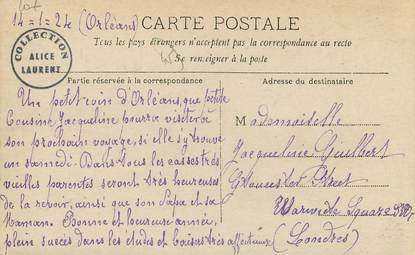 107
14-1-24 (Orléans)
CARTE POSTALE
Tous les pays étrangers n'acceptent pas la correspondance au recto
Se renseigner à la poste
45
COLLECTION
ALICE
LAURENT
Partie réservée à la correspondance
Adresse du destinataire
Un petit coin d'Orléans, que petite
Cousine Jacqueline pourra visiter à
son prochain voyage, si elle s'y trouve
un samedi. Dans tous les cas ses très
vieilles parentes seront très heureuses
de la revoir, ainsi que son Papa et sa
Maman. Bonne et heureuse année,
plein succès dans les études et baisers très affectueux
Mademoiselle
Jacqueline Guilbert
Gloucester Street
Warwick Square
(Londres)